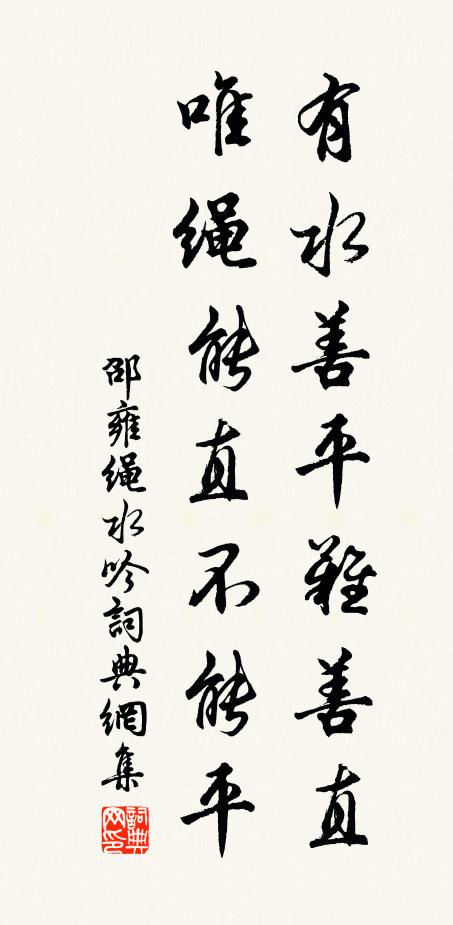 有水善平難善直
唯绳能直不能平
邵雍绳水吟詞典網集
詞典网印